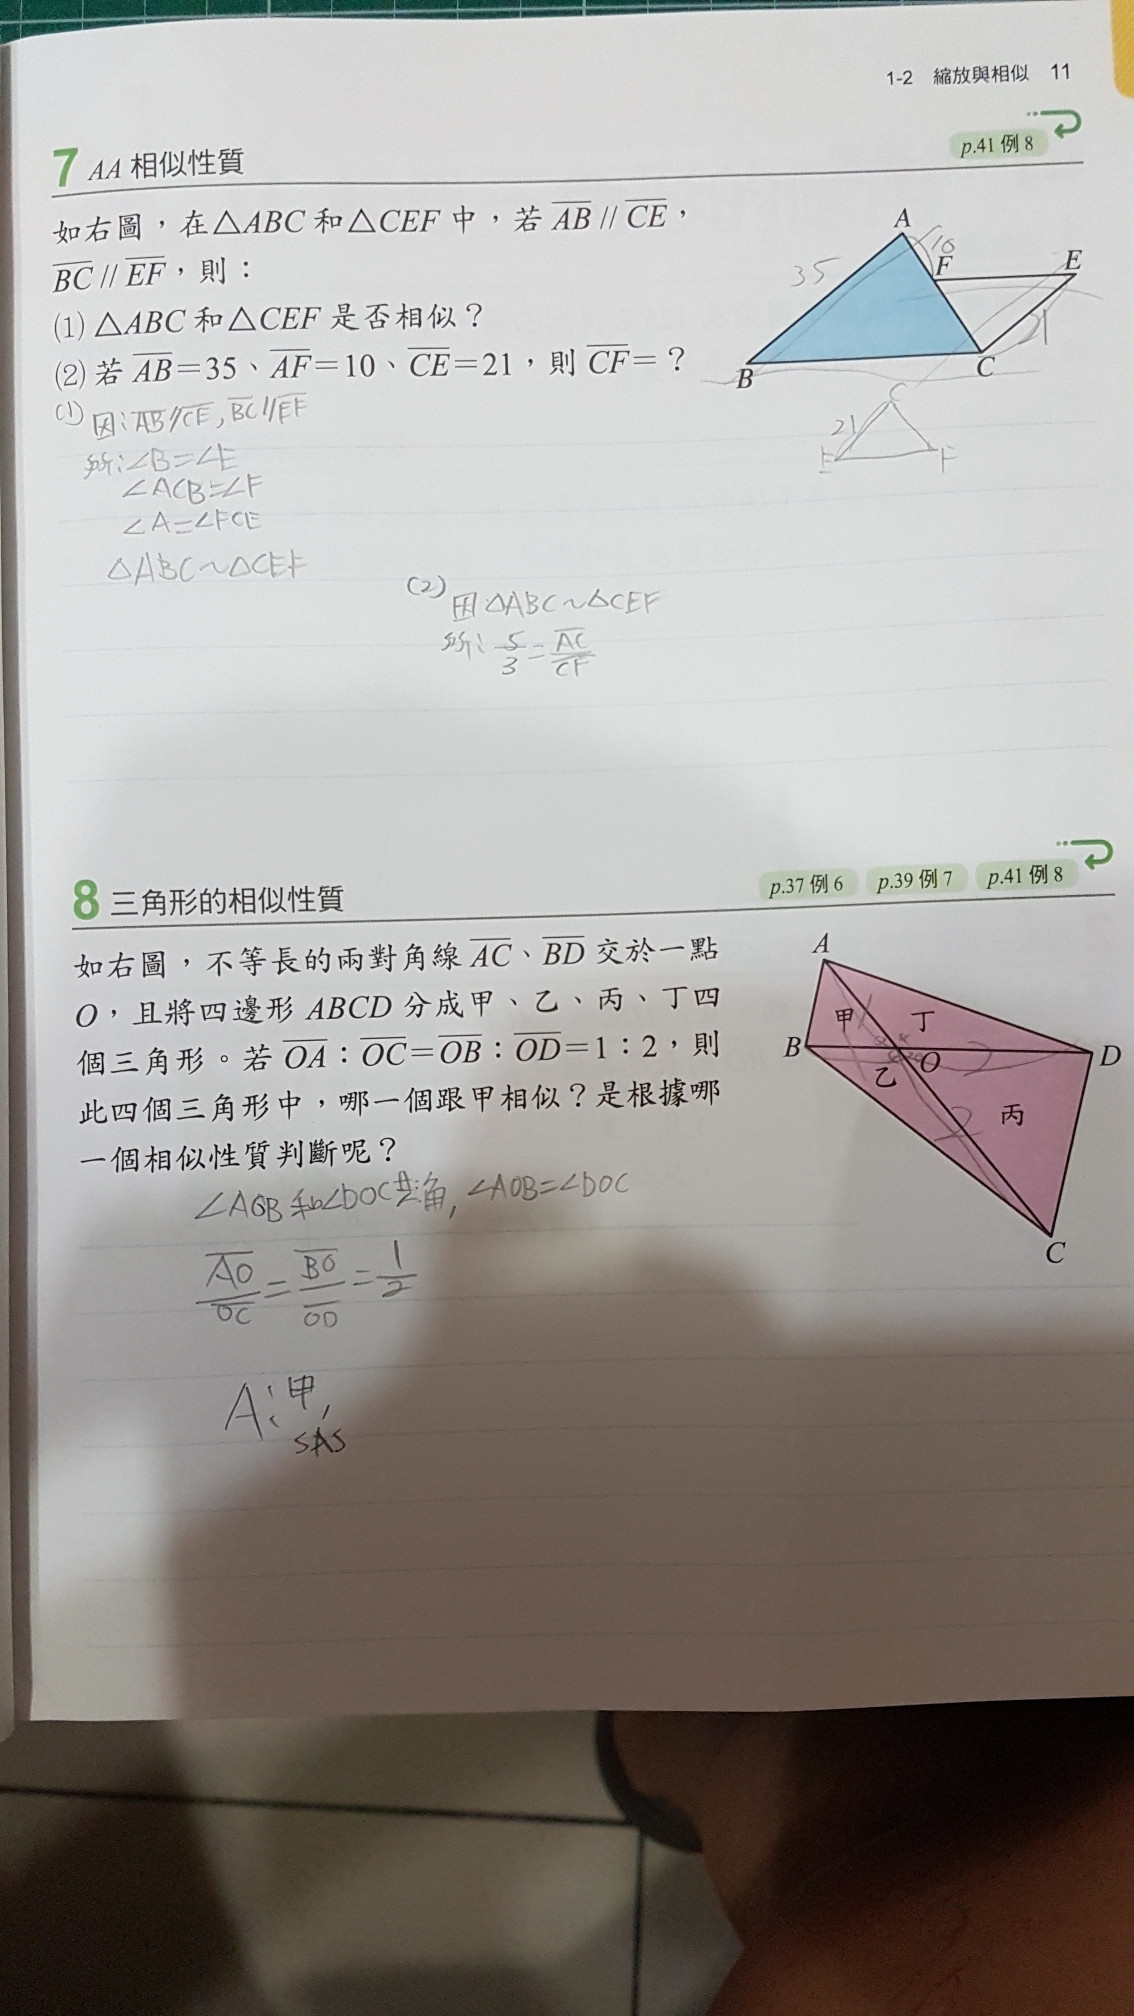 1-2 縮放與相似 11
7 AA 相似性質
p.41 例 8
如右圖，在△ABC 和△CEF 中，若 AB // CE，
BC // EF，則：
(1) △ABC 和△CEF 是否相似？
(2) 若 AB=35、AF=10、CE=21，則 CF=？
A
10
F
E
35
21
B
C
C
21
E
F
(1) 因:AB//CE, BC//EF
所:∠B=∠E
∠ACB=∠F
∠A=∠FCE
△ABC~△CEF
(2) 因△ABC~△CEF
所: 5/3 = AC/CF
8 三角形的相似性質
p.37 例 6 p.39 例 7 p.41 例 8
如右圖，不等長的兩對角線 AC、BD 交於一點
O，且將四邊形 ABCD 分成甲、乙、丙、丁四
個三角形。若 OA：OC=OB：OD=1：2，則
此四個三角形中，哪一個跟甲相似？是根據哪
一個相似性質判斷呢？
A
甲
1
丁
B
O
2
D
乙
丙
2
C
∠AOB和∠DOC共角, ∠AOB=∠DOC
AO/OC = BO/OD = 1/2
A:甲,
SAS